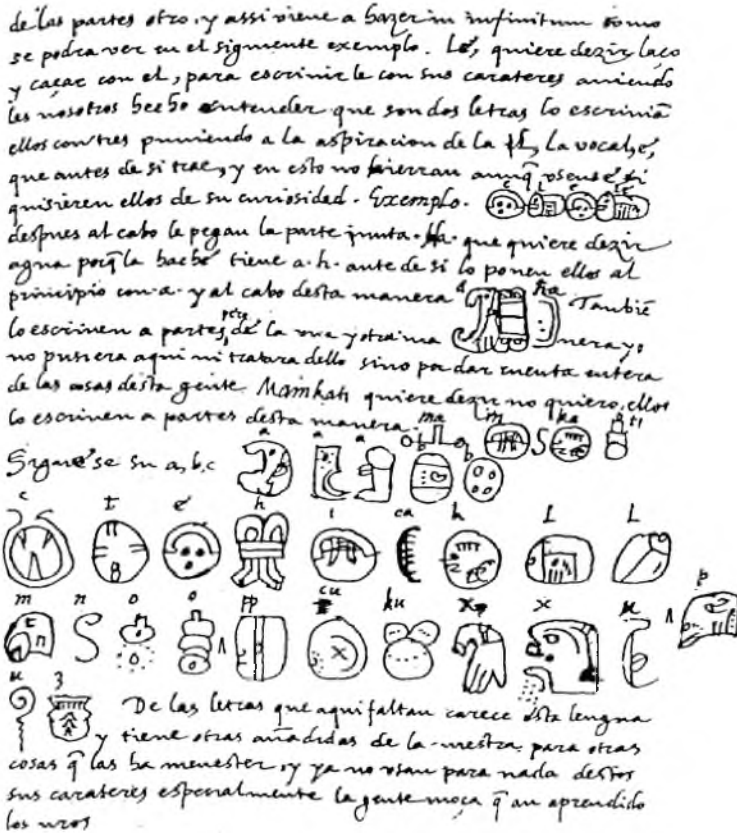 de las partes otro, y assi viene a hazer in infinitum como
se podra ver en el siguiente exemplo. Lé, quiere dezir laço
y caçar con el, para escrivirle con sus carateres aviendo
les nosotros hecho entender que son dos letras lo escrivian
ellos con tres puniendo a la aspiracion de la ɫ, la vocal, é,
que antes de si trae, y en esto no hierran aunq̄ usense si
quisieren ellos de su curiosidad. Exemplo.
e l e lé
despues al cabo le pegan la parte junta. Ha. que quiere dezir
agua porq̄ la hache tiene a. h. ante de si lo ponen ellos al
principio con. a. y al cabo desta manera
a ha
Tambiē
lo escriven a partes, pero de la una y otra ma nera yo
no pusiera aqui ni tratara dello sino por dar cuenta entera
de las cosas desta gente. Mainkati quiere dezir no quiero, ellos
lo escriven a partes desta manera.
ma i n ka ti
Siguese su a, b, c
a a a b b
c t é h i ca k l l
m n o o pp cu ku x x u p
u z
De las letras que aqui faltan carece esta lengua
y tiene otras añadidas de la nuestra para otras
cosas q̄ las ha menester, y ya no usan para nada destos
sus carateres especialmente la gente moça q̄ an aprendido
los nros